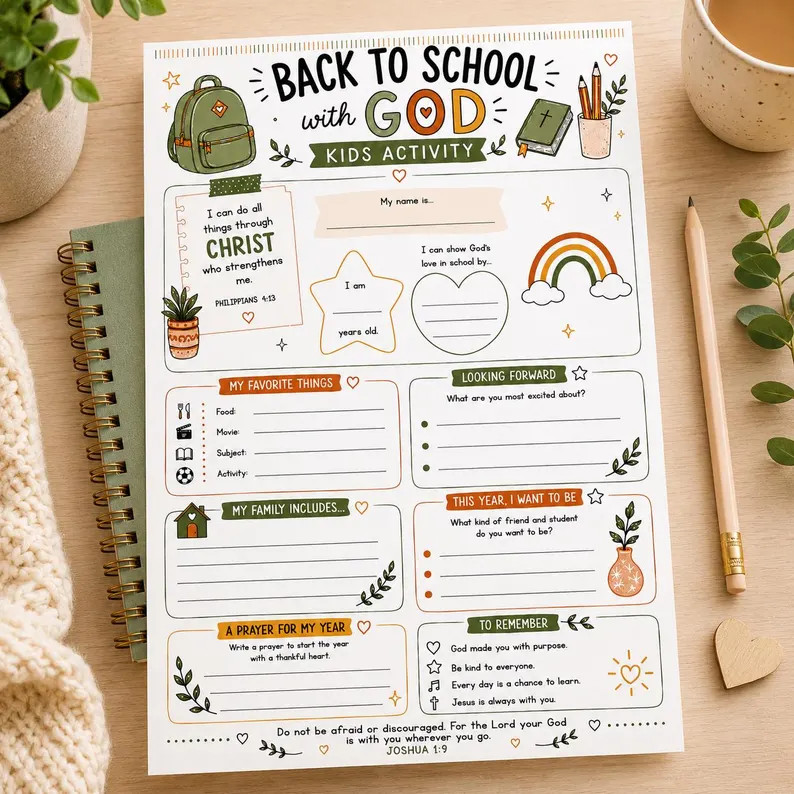 BACK TO SCHOOL
with GOD
KIDS ACTIVITY
I can do all
things through
CHRIST
who strengthens
me.
PHILIPPIANS 4:13
My name is...
I am
years old.
I can show God's
love in school by...
MY FAVORITE THINGS
Food:
Movie:
Subject:
Activity:
LOOKING FORWARD
What are you most excited about?
MY FAMILY INCLUDES...
THIS YEAR, I WANT TO BE
What kind of friend and student
do you want to be?
A PRAYER FOR MY YEAR
Write a prayer to start the year
with a thankful heart.
TO REMEMBER
God made you with purpose.
Be kind to everyone.
Every day is a chance to learn.
Jesus is always with you.
Do not be afraid or discouraged. For the Lord your God
is with you wherever you go.
JOSHUA 1:9